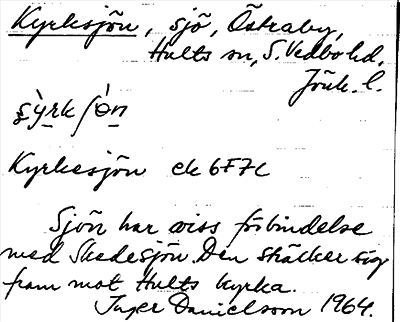 Kyrksjön, sjö, Östraby,
Hults sn, S. Vedbo hd.
Jönk. l.
Kyrkesjön ek 6F7c
Sjön har viss förbindelse
med Skedesjön. Den skäcker sig
fram mot Hults kyrka.
Inger Danielsson 1964.